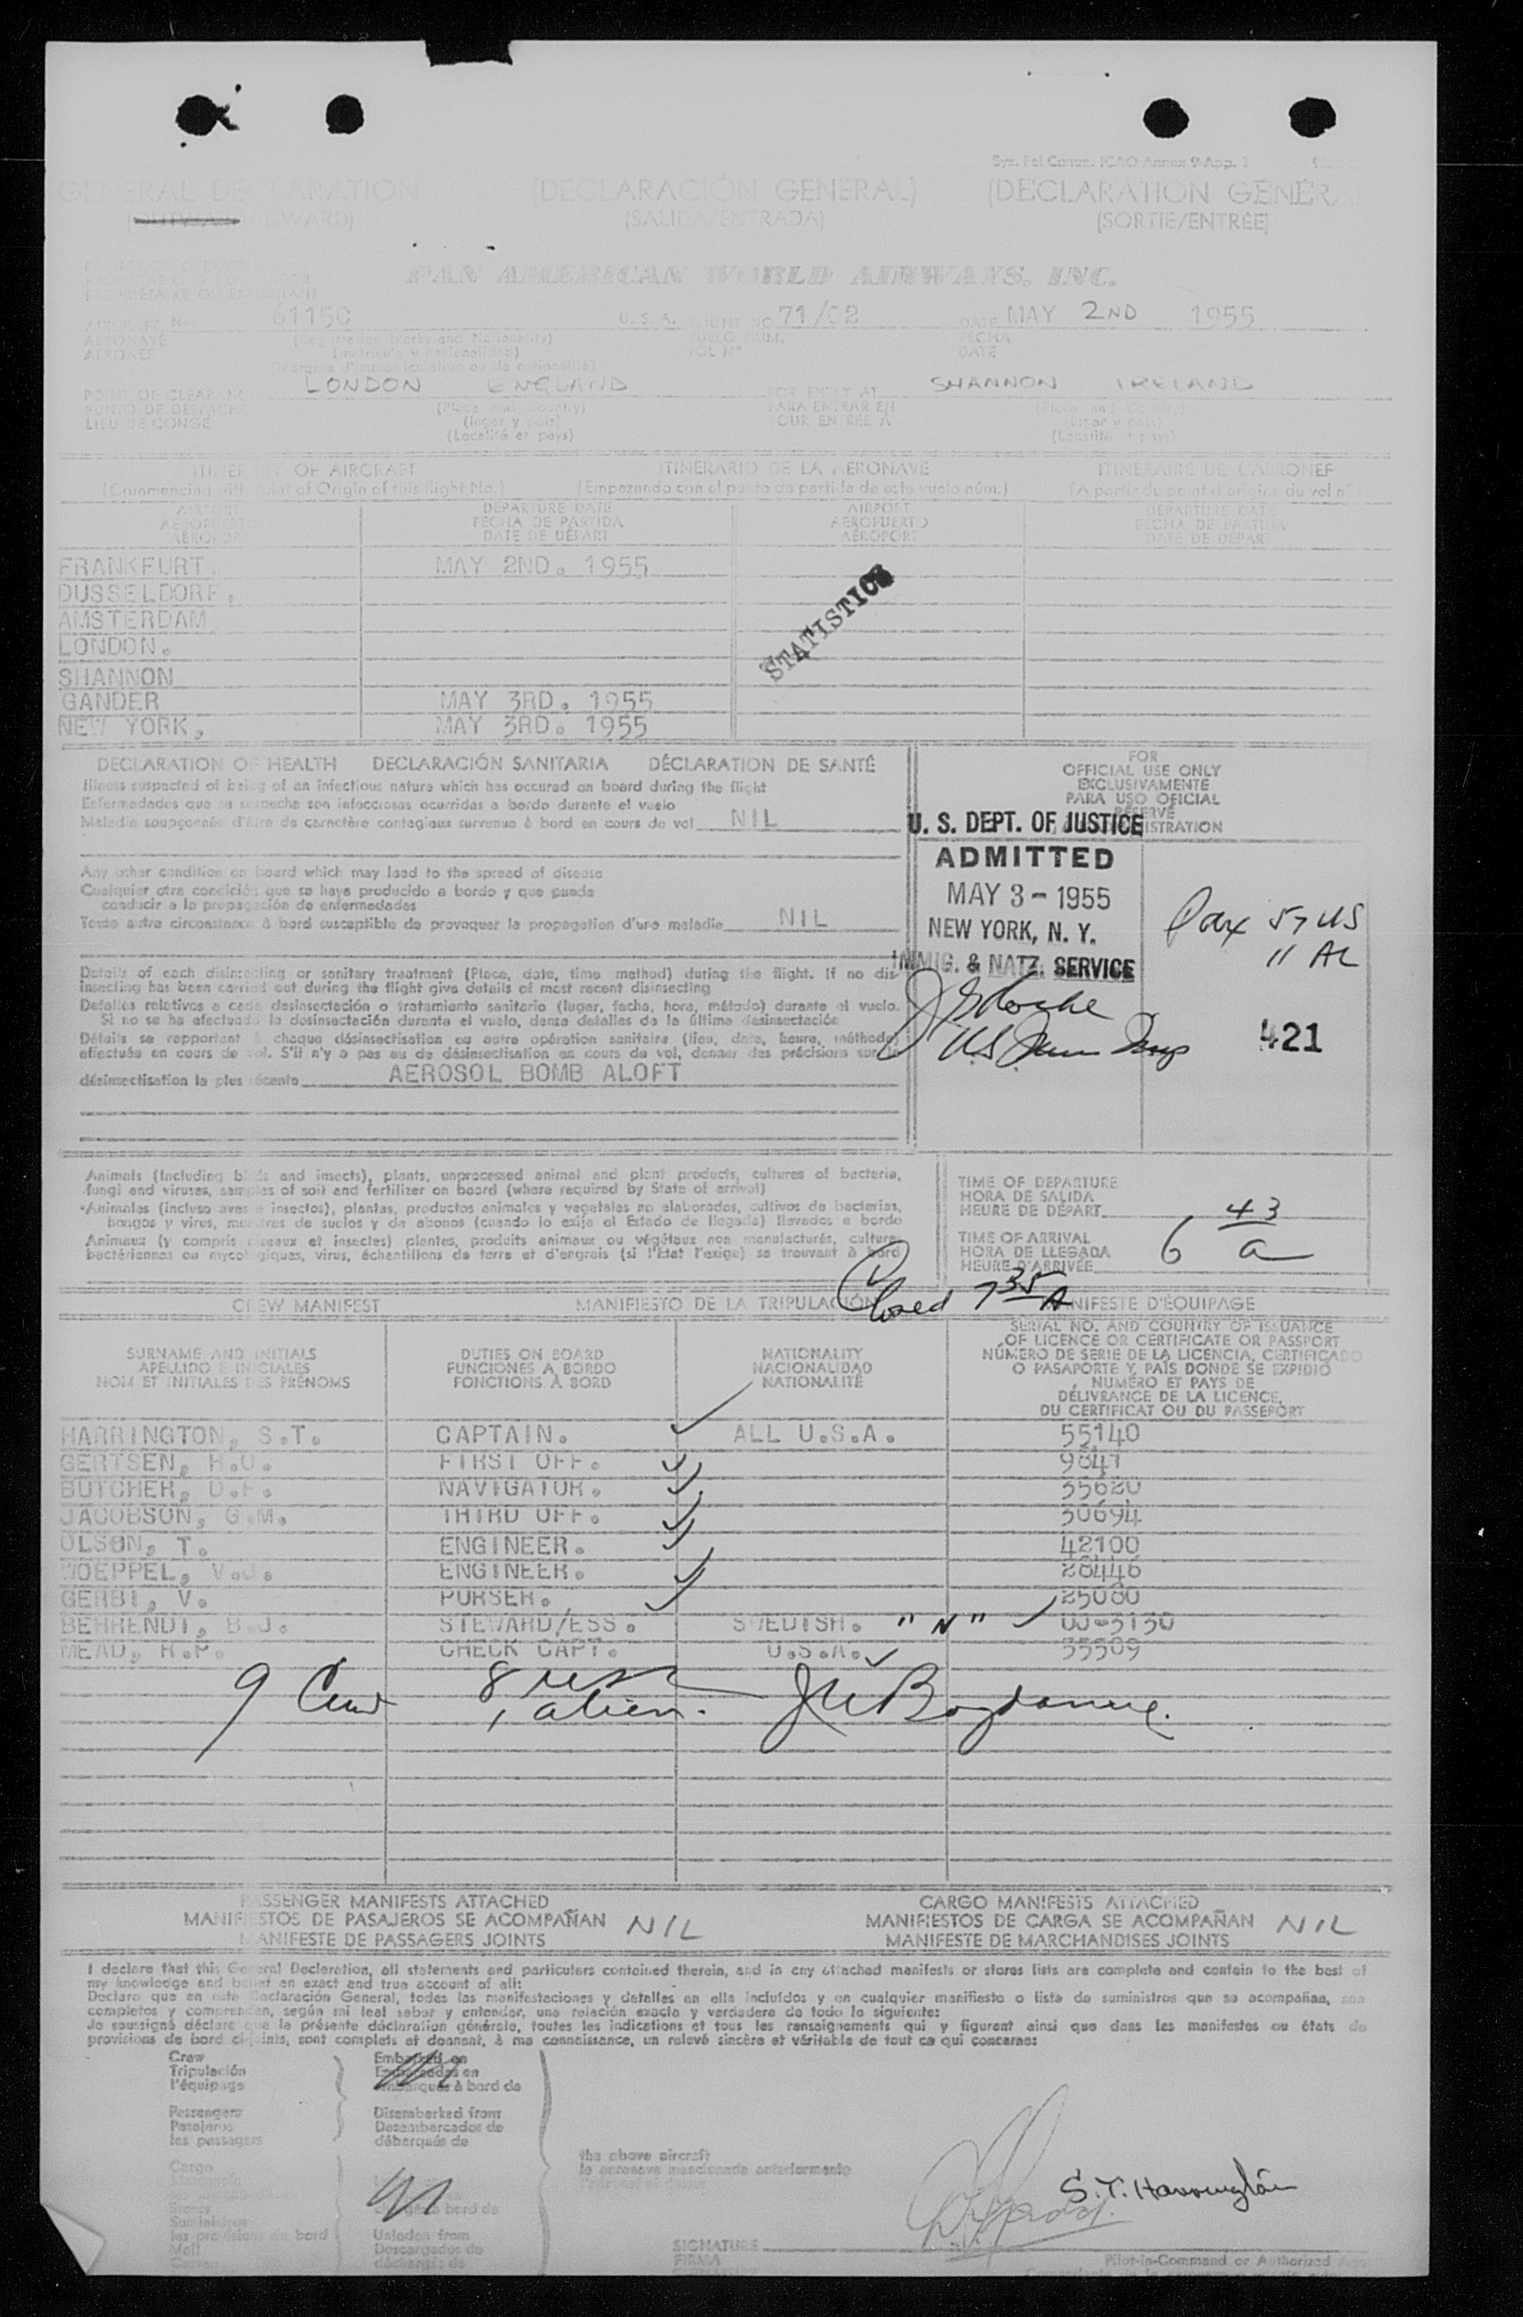 GENERAL DECLARATION (DECLARACIÓN GENERAL) (DECLARATION GÉNÉR
(SALIDA/ENTRADA) (SORTIE/ENTRÉE)
PAN AMERICAN WORLD AIRWAYS, INC.
6115C U.S.A. 71/02 DATE MAY 2ND 1955
AERONAVE FECHA
AERONEF VOL Nº DATE
LONDON ENGLAND SHANNON IRELAND
PUNTO DE DESPACHO PARA ENTRAR EN
LIEU DE CONGÉ (Localité et pays)
ITINERARY OF AIRCRAFT ITINERARIO DE LA AERONAVE ITINÉRAIRE DE L'AÉRONEF
(Empezando con el punto de partida de este vuelo núm.)
AIRPORT DEPARTURE DATE AIRPORT DEPARTURE DATE
AEROPUERTO FECHA DE PARTIDA AEROPUERTO FECHA DE PARTIDA
AÉROPORT DATE DE DÉPART AÉROPORT DATE DE DÉPART
FRANKFURT. MAY 2ND. 1955
DUSSELDORF,
AMSTERDAM
LONDON.
SHANNON
GANDER MAY 3RD. 1955
NEW YORK, MAY 3RD. 1955
STATISTICS
DECLARATION OF HEALTH DECLARACIÓN SANITARIA DÉCLARATION DE SANTÉ
Illness suspected of being of an infectious nature which has occured on board during the flight
Enfermedades que se sospecha son infecciosas ocurridas a bordo durante el vuelo
Maladie soupçonnée d'être de caractère contagieux survenue à bord en cours de vol NIL
Any other condition on board which may lead to the spread of disease
Cualquier otra condición que se haya producido a bordo y que pueda
conducir a la propagación de enfermedades
Toute autre circonstance à bord susceptible de provoquer la propagation d'une maladie NIL
Details of each disinsecting or sanitary treatment (Place, date, time method) during the flight. If no dis-
insecting has been carried out during the flight give details of most recent disinsecting
Detalles relativos a cada desinsectación o tratamiento sanitario (lugar, fecha, hora, método) durante el vuelo.
Si no se ha efectuado la desinsectación durante el vuelo, dense detalles de la última desinsectación
Détails se rapportant à chaque désinsectisation ou autre opération sanitaire (lieu, date, heure, méthode)
effectuée en cours de vol. S'il n'y a pas eu de désinsectisation en cours de vol, donner des précisions sur la
désinsectisation la plus récente AEROSOL BOMB ALOFT
FOR
OFFICIAL USE ONLY
EXCLUSIVAMENTE
PARA USO OFICIAL
RÉSERVÉ
U. S. DEPT. OF JUSTICE
ADMITTED
MAY 3 - 1955
NEW YORK, N. Y.
IMMIG. & NATZ. SERVICE
Pax 57 US
11 AL
421
Animals (Including birds and insects), plants, unprocessed animal and plant products, cultures of bacteria,
fungi and viruses, samples of soil and fertilizer on board (where required by State of arrival)
Animales (incluso aves e insectos), plantas, productos animales y vegetales no elaborados, cultivos de bacterias,
hongos y virus, muestras de suelos y de abonos (cuando lo exija el Estado de llegada) llevados a bordo
Animaux (y compris oiseaux et insectes) plantes, produits animaux ou végétaux non manufacturés, culture
bactériennes ou mycologiques, virus, échantillons de terre et d'engrais (si l'État l'exige) se trouvant à bord
TIME OF DEPARTURE
HORA DE SALIDA
HEURE DE DÉPART
TIME OF ARRIVAL
HORA DE LLEGADA
HEURE D'ARRIVÉE
6 43 a
Closed 7 35 A
CREW MANIFEST MANIFIESTO DE LA TRIPULACIÓN MANIFESTE D'ÉQUIPAGE
SURNAME AND INITIALS DUTIES ON BOARD NATIONALITY SERIAL NO. AND COUNTRY OF ISSUANCE
APELLIDO E INICIALES FUNCIONES A BORDO NACIONALIDAD OF LICENCE OR CERTIFICATE OR PASSPORT
NOM ET INITIALES DES PRÉNOMS FONCTIONS À BORD NATIONALITÉ NÚMERO DE SERIE DE LA LICENCIA, CERTIFICADO
O PASAPORTE Y PAÍS DONDE SE EXPIDIÓ
NUMÉRO ET PAYS DE
DÉLIVRANCE DE LA LICENCE,
DU CERTIFICAT OU DU PASSEPORT
HARRINGTON, S.T. CAPTAIN. ALL U.S.A. 55140
GERTSEN, FIRST OFF. 9847
BUTCHER, NAVIGATOR.
JACOBSON, G.M. THIRD OFF. 30694
OLSON, T. ENGINEER. 42100
ENGINEER. 28446
GERBI, V. PURSER. 25080
BEHRENDT, B.J. STEWARD/ESS. SWEDISH. "N"
MEAD, R.P. CHECK CAPT. U.S.A. 35509
9 Crew 8 usc
1 alien.
PASSENGER MANIFESTS ATTACHED CARGO MANIFESTS ATTACHED
MANIFIESTOS DE PASAJEROS SE ACOMPAÑAN NIL MANIFIESTOS DE CARGA SE ACOMPAÑAN NIL
MANIFESTE DE PASSAGERS JOINTS MANIFESTE DE MARCHANDISES JOINTS
I declare that this General Declaration, all statements and particulars contained therein, and in any attached manifests or stores lists are complete and contain to the best of
my knowledge and belief an exact and true account of all:
Declaro que en esta Declaración General, todas las manifestaciones y detalles en ella incluídos y en cualquier manifiesto o lista de suministros que se acompañan, son
completos y comprenden, según mi leal saber y entender, una relación exacta y verdadera de todo lo siguiente:
Je soussigné déclare que la présente déclaration générale, toutes les indications et tous les renseignements qui y figurent ainsi que dans les manifestes ou états de
provisions de bord ci-joints, sont complets et donnent, à ma connaissance, un relevé sincère et véritable de tout ce qui concerne:
Crew Embarked on
Tripulación Embarcados en
l'équipage embarqués à bord de
Passengers Disembarked from
Pasajeros Desembarcados de
les passagers débarqués de
the above aircraft
la aeronave mencionada anteriormente
Cargo
Stores
Suministros
les provisions de bord Unladen from
Mail Descargados de
S.T. Harrington
SIGNATURE
FIRMA Pilot-in-Command or Authorized